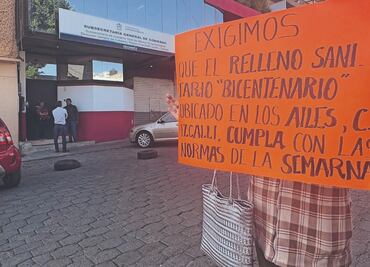 SUBSECRETARÍA GENERAL DE GOBIERNO
EXIGIMOS
QUE EL RELLENO SANI-
TARIO "BICENTENARIO"
UBICADO EN LOS AILES, C.
IZCALLI, CUMPLA CON LAS
NORMAS DE LA SEMARNA